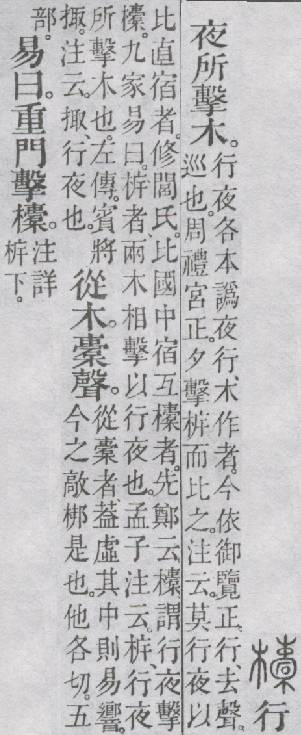 欜行
夜所擊木。
行夜各本譌夜行。木作者。今依御覽正。行、去聲。
巡也。周禮宮正。夕擊柝而比之。注云。莫行夜以
比直宿者。修閭氏。比國中宿互欜者。先鄭云。欜謂行夜擊
欜。九家易曰。柝者兩木相擊以行夜也。孟子注云。柝、行夜
所擊木也。左傳。賓將
掫。注云。掫、行夜也。
從木。橐聲。
從橐者、葢虛其中則易響。
今之敲梆是也。他各切。五
部。
易曰。重門擊欜。
注詳
柝下。